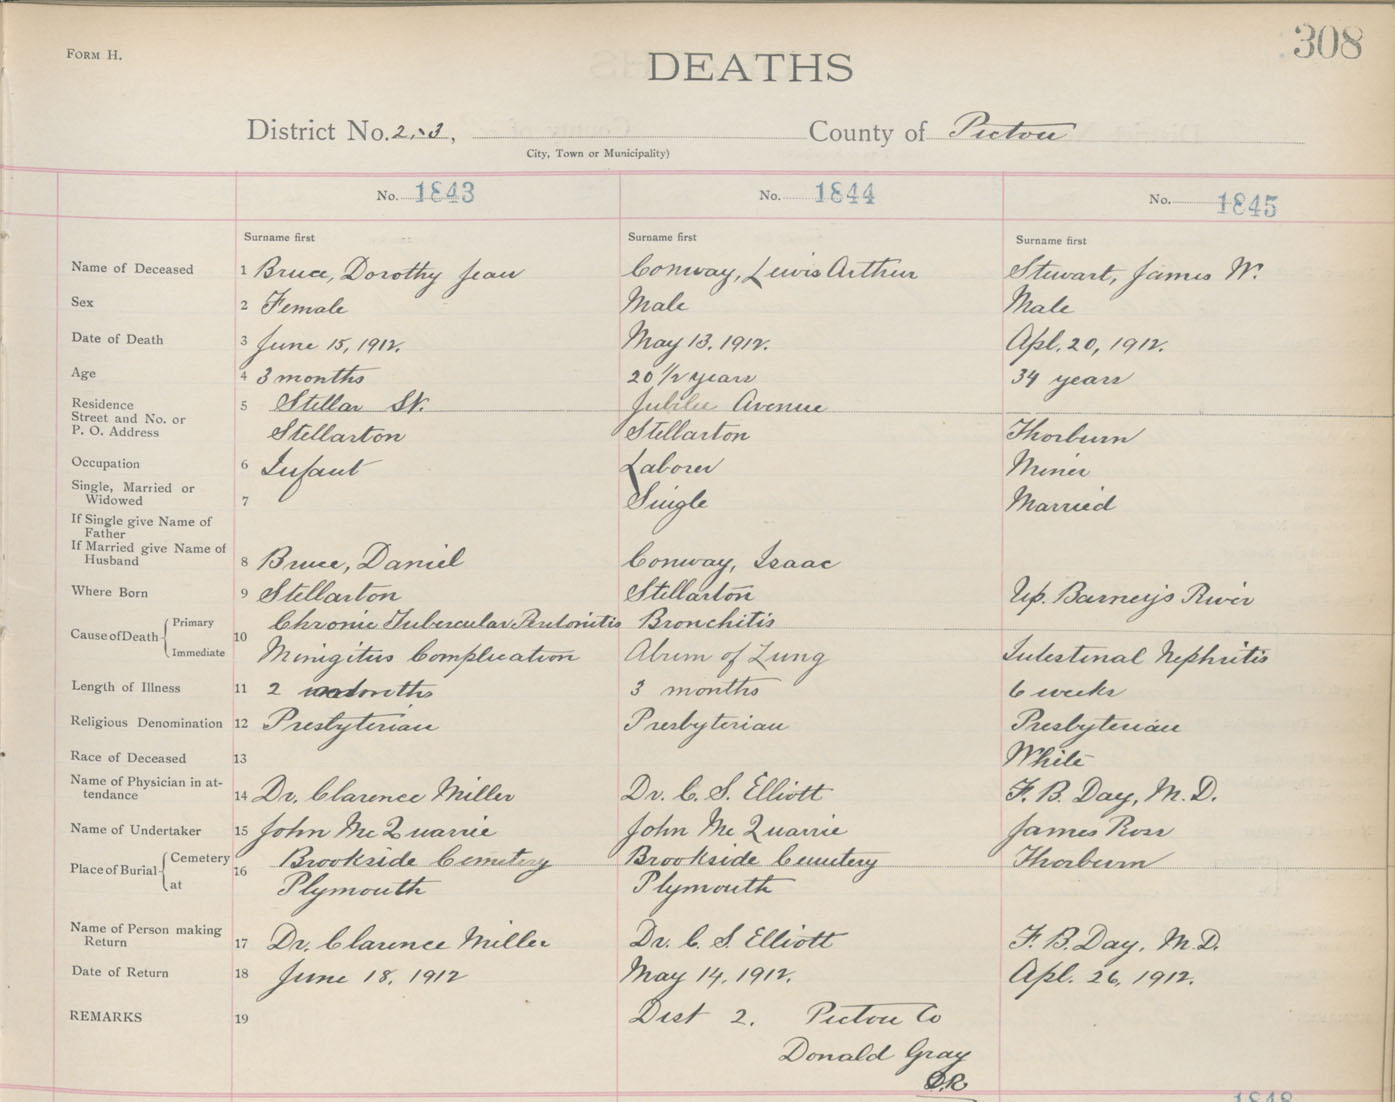 FORM H.
308
DEATHS
District No. 2, 3, County of Pictou
City, Town or Municipality)
No. 1843 No. 1844 No. 1845
Surname first Surname first Surname first
Name of Deceased 1 Bruce, Dorothy Jean Conway, Lewis Arthur Stewart, James W.
Sex 2 Female Male Male
Date of Death 3 June 15, 1912. May 13, 1912. Apl. 20, 1912.
Age 4 3 months 20 1/2 years 34 years
Residence 5 Stellar St. Jubilee Avenue
Street and No. or
P. O. Address Stellarton Stellarton Thorburn
Occupation 6 Infant Laborer Miner
Single, Married or
Widowed 7 Single Married
If Single give Name of
Father
If Married give Name of
Husband 8 Bruce, Daniel Conway, Isaac
Where Born 9 Stellarton Stellarton Up. Barney's River
Cause of Death Primary 10 Chronic Tubercular Peritonitis Bronchitis
Immediate Minigitus Complication of Lung Intestinal Nephritis
Length of Illness 11 2 months 3 months 6 weeks
Religious Denomination 12 Presbyterian Presbyterian Presbyterian
Race of Deceased 13 White
Name of Physician in at-
tendance 14 Dr. Clarence Miller Dr. C. S. Elliott F. B. Day, M.D.
Name of Undertaker 15 John McQuarrie John McQuarrie James Ross
Place of Burial Cemetery 16 Brookside Cemetery Brookside Cemetery Thorburn
at Plymouth Plymouth
Name of Person making
Return 17 Dr. Clarence Miller Dr. C. S. Elliott F. B. Day, M.D.
Date of Return 18 June 18, 1912 May 14, 1912. Apl. 26, 1912.
REMARKS 19 Dist 2. Pictou Co
Donald Gray
D.R.
1848